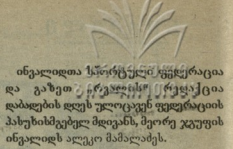 ინვალიდთა სპორტული ფედერაცია
და გაზეთ რედაქცია
დაბადების დღეს ულოცავენ ფედერაციის
პასუხისმგებელ მდივანს, მეორე ჯგუფის
ინვალიდს ალეკო მამალაძეს.